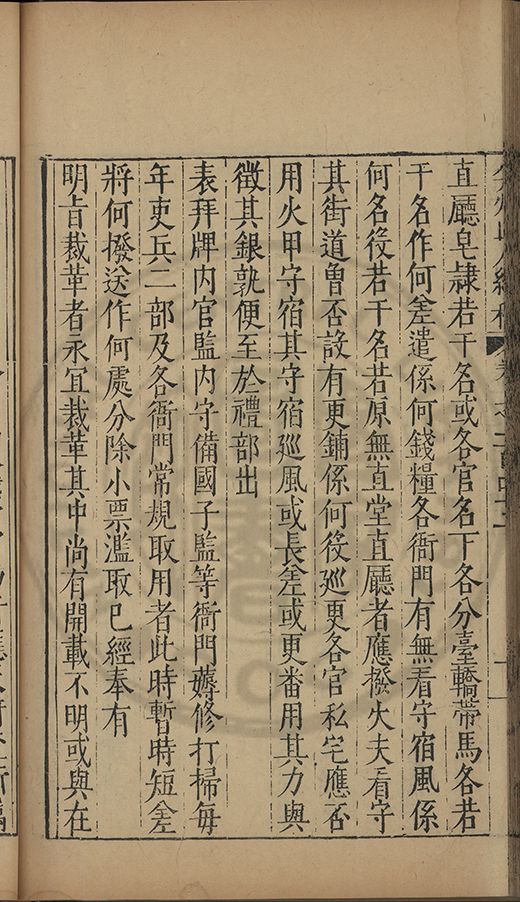 直廳皂隸若干名或各官名下各分臺轎帶馬各若
干名作何差遣係何錢糧各衙門有無看守宿風係
何名役若干名若原無直堂直廳者應撥火夫看守
其街道曾否設有更鋪係何役巡更各官私宅應否
用火甲守宿其守宿巡風或長差或更番用其力與
徵其銀孰便至於禮部出
表拜牌內官監內守備國子監等衙門薅修打掃每
年吏兵二部及各衙門常規取用者此時暫時短差
將何撥送作何處分除小票濫取已經奉有
明旨裁革者永宜裁革其中尚有開載不明或與在